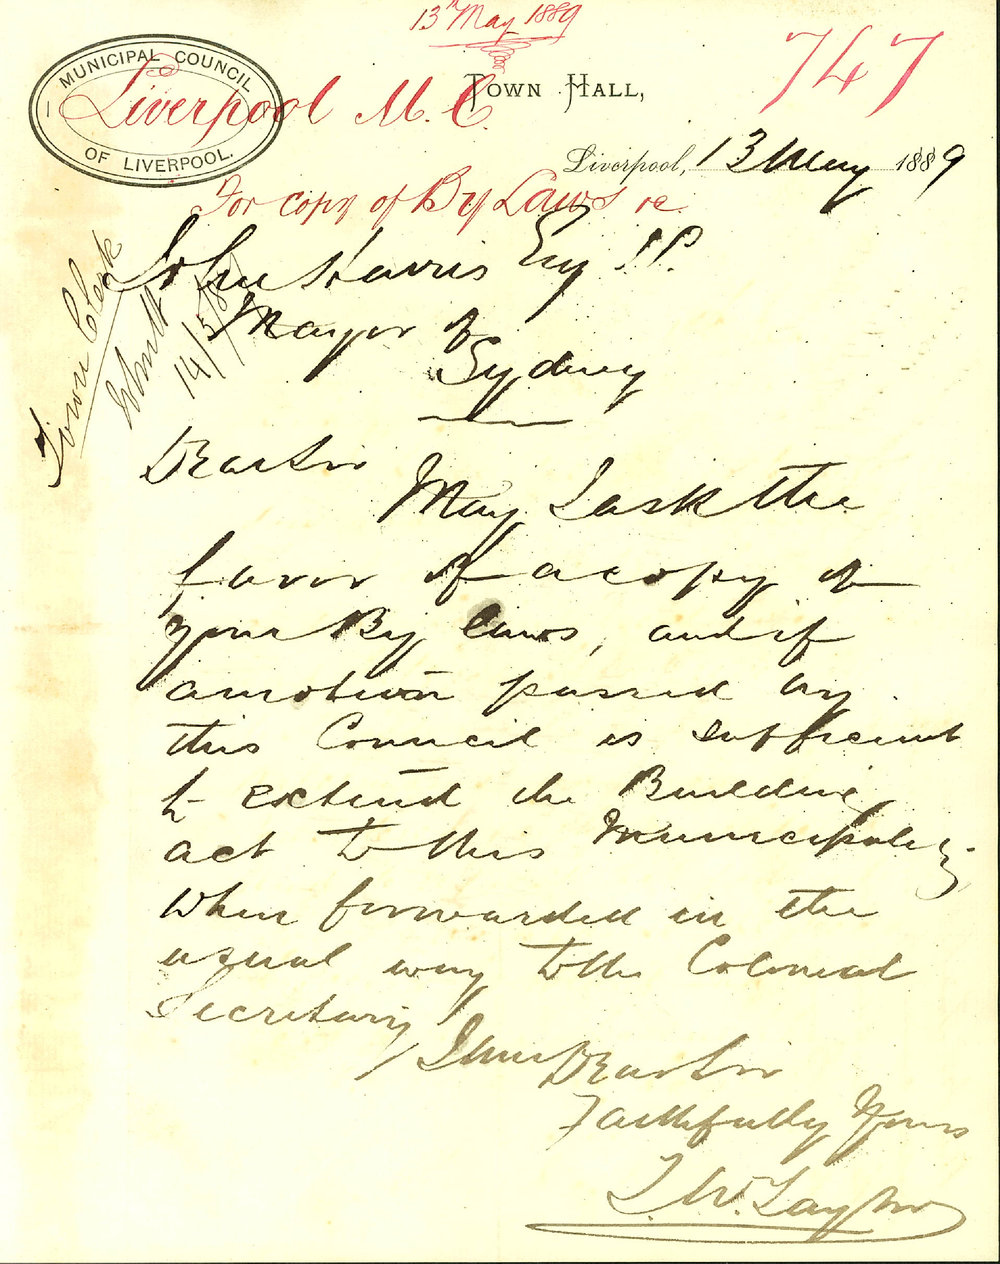 13th May 1889
747
MUNICIPAL COUNCIL
OF LIVERPOOL.
Liverpool M. C.
TOWN HALL,
Liverpool, 13 May 1889
For copy of By Laws re
Town Clerk
14/5/89
John Harris Esq J.P.
Mayor of
Sydney
Dear Sir
May I ask the
favor of a copy of
your By laws, and if
a motion passed by
this Council is sufficient
to extend the Building
act to this Municipality
when forwarded in the
usual way to the Colonial
Secretary
Dear Sir
Faithfully Yours
Taylor